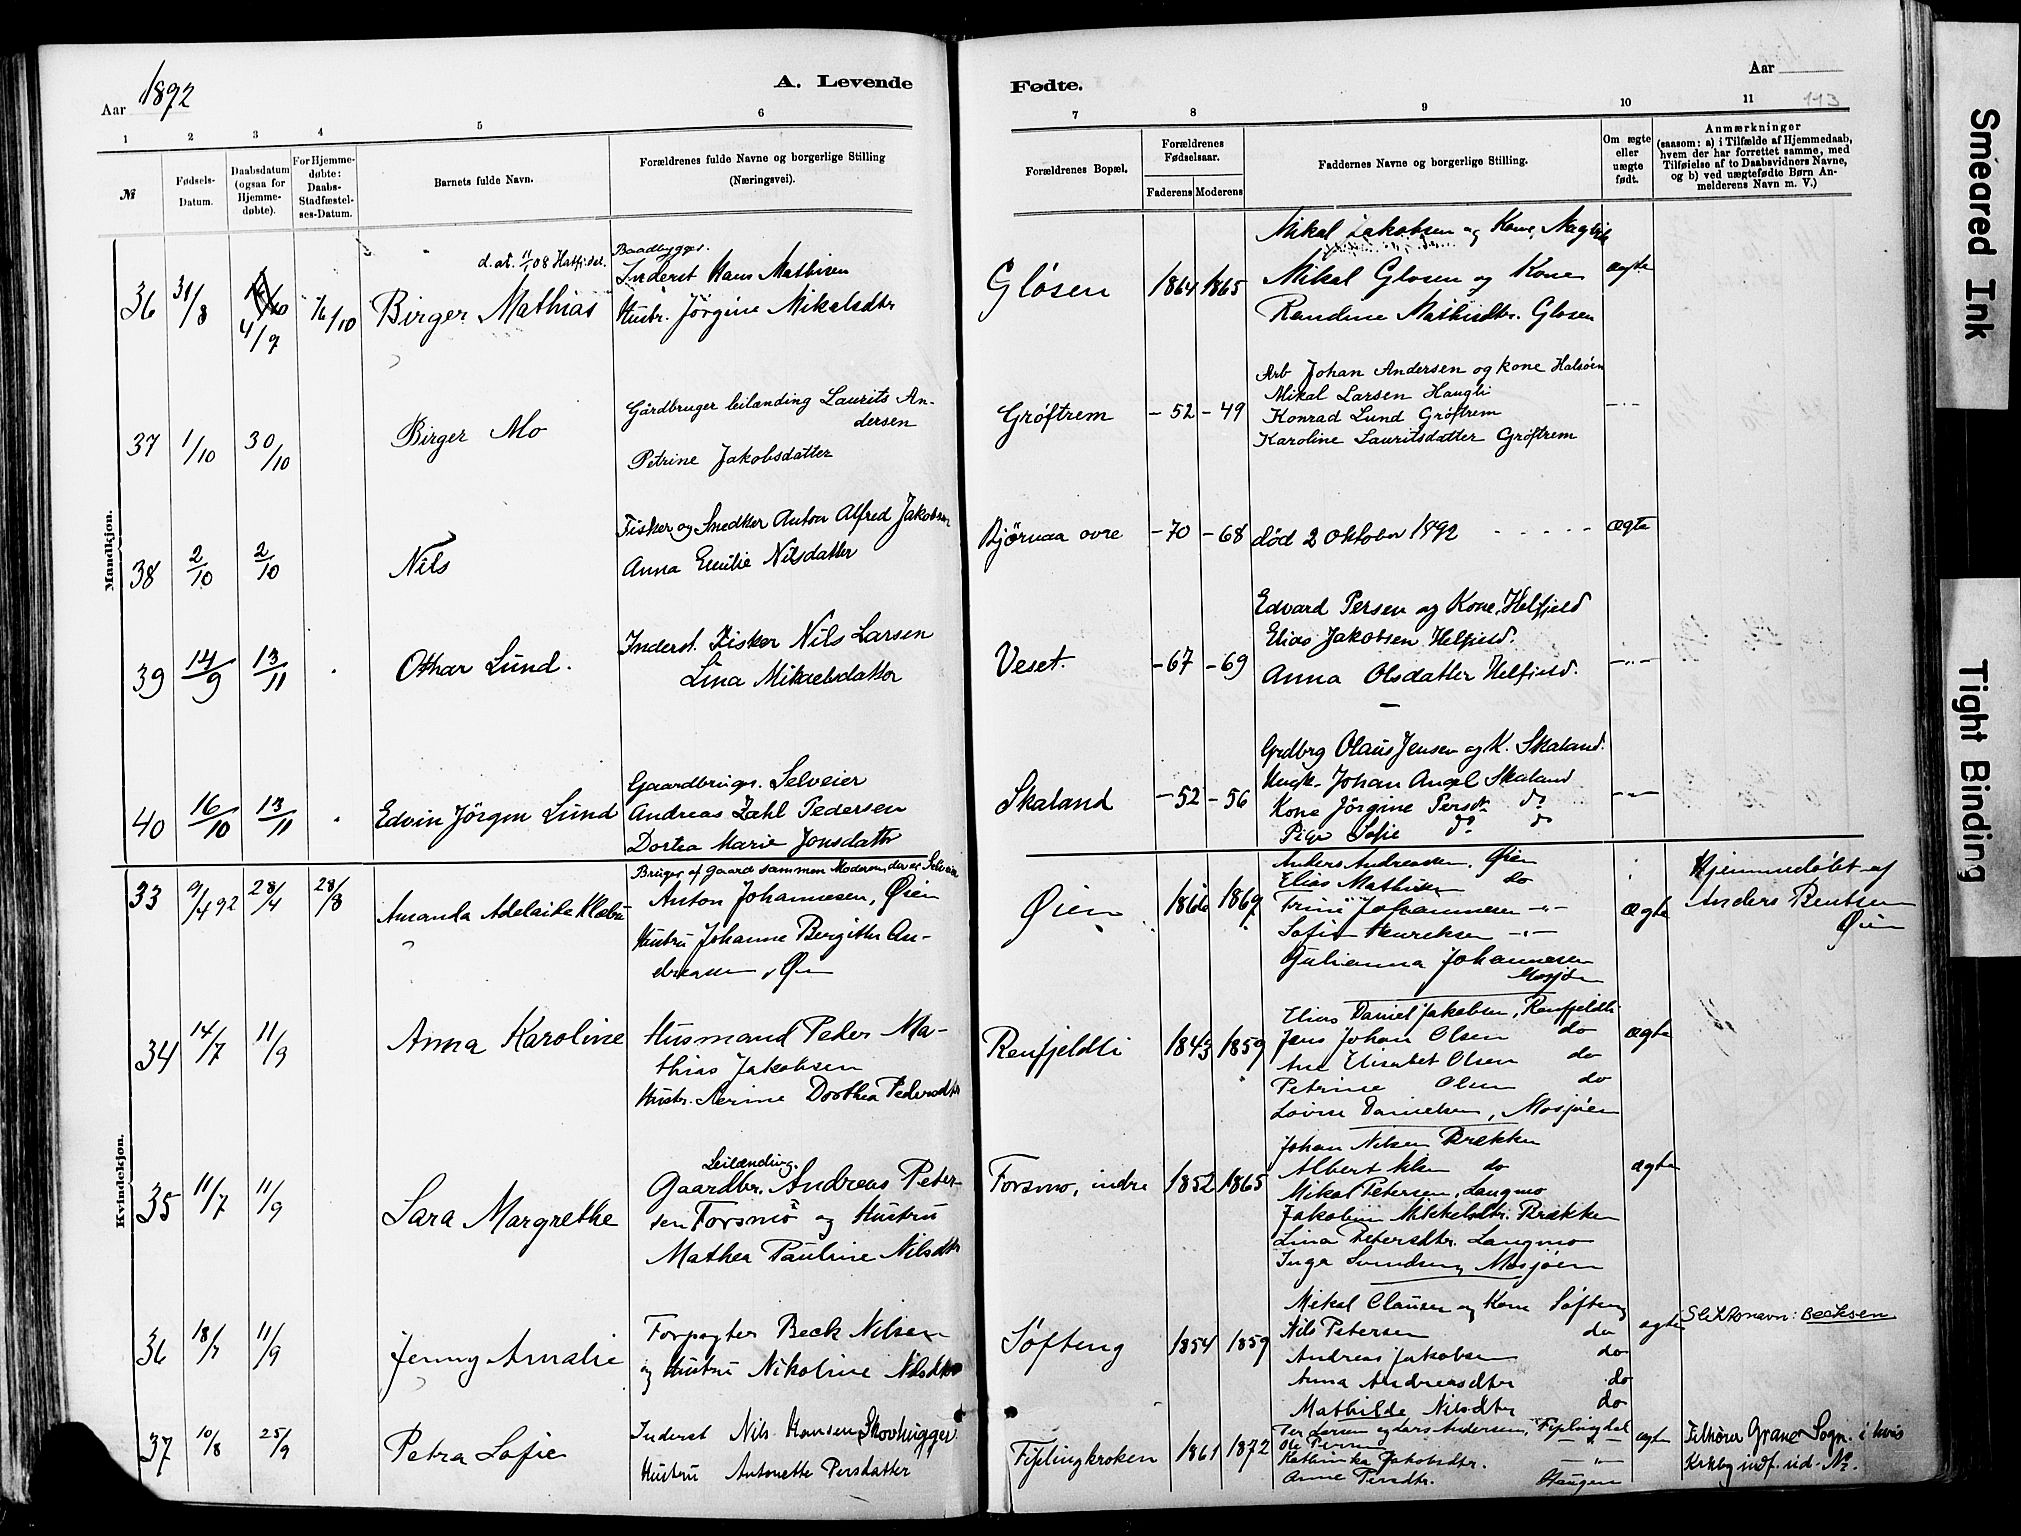 Aar 1892
A. Levende
Fødte.
Aar
113
1 2 3 4 5 6
7 8 9 10 11
№
Fødsels-
Datum.
Daabsdatum
(ogsaa for
Hjemme-
døbte).
For Hjemme-
døbte:
Daabs-
Stadfæstel-
ses-Datum.
Barnets fulde Navn.
Forældrenes fulde Navne og borgerlige Stilling
(Næringsvei).
Forældrenes Bopæl.
Forældrenes
Fødselsaar.
Faderens Moderens
Faddernes Navne og borgerlige Stilling.
Om ægte
eller
uægte
født.
Anmærkninger
(saasom: a) i Tilfælde af Hjemmedaab,
hvem der har forrettet samme, med
Tilføielse af to Daabsvidners Navne,
og b) ved uægtefødte Børn An-
melderens Navn m. V.)
Mandkjøn.
36 31/8 4/9 16/10
d. at. 11/1 08 Hatfj.del.
Birger Mathias
Baadbygger.
Inderst Hans Mathisen
Hustr. Jørgine Mikalsdtr
Gløsen 1864 1865
Mikal Jakobsen og Kone,
Mikal Glosen og Kone
Randine Mathisdtr. Glosen
ægte
37 1/10 30/10
Birger Mo
Gårdbruger leilænding Laurits An-
dersen
Petrine Jakobsdatter
Grøftrem - 52 - 49
Arb Johan Andersen og kone Halsøen
Mikal Larsen Haugli
Konrad Lund Grøftrem
Karoline Lauritsdatter Grøftrem
-"-
38 2/10 2/10
Nils
Fisker og Snedker Anton Alfred Jakobsen
Anna Emilie Nilsdatter
Bjørnaa ovre - 70 - 68
død 2 Oktober 1892 - - - - -
ægte
39 14/9 13/11
Othar Lund.
Inderst. Fisker Nils Larsen
Lina Mikaelsdatter
Veset. - 67 - 69
Edvard Persen og Kone, Helfjeld
Elias Jakobsen Helfjeld.
Anna Olsdatter Helfjeld.
-"-
40 16/10 13/11
Edvin Jörgen Lund
Gaardbruger. Selveier
Andreas Zahl Pedersen
Dortea Marie Jonsdatter
Skaland - 52 - 56
Grdbrg Olaus Jensen og K. Skaland.
Johan Angel Skaland
Kone Jörgine Persdt. do
Pige Sofie do do
-"-
Kvindekjøn.
33 9/4 92 28/4 28/8
Amanda Adelaide Klæbu
Bruger af Gaard sammen Moderen, der er Selveier
Anton Johannesen, Øien
Hustru Johanne Bergitte An-
dreassen, Øien
Øien 1866 1869
Anders Andreassen, Øien
Elias Mathisen do
Trine Johannesen -"-
Sofie Henriksen -"-
Julianna Johannesen
Mosjøen
ægte
Hjemmedøbt af
Anders Bentsen
Øien
34 14/7 11/9
Anna Karoline
Husmand Peder Ma-
thias Jakobsen
Hustr. Nerine Dorthea Pedersdtr
Renfjeldli 1843 1859
Elias Daniel Jakobsen, Renfjeldli
Jens Johan Olsen do
Ane Elisabet Olsen do
Petrine Olsen do
Lovise Danielsen, Mosjøen
ægte
35 11/7 11/9
Sara Margrethe
Leilænding.
Gaardbr. Andreas Peter-
sen Forsmo og Hustru
Mathea Pauline Nilsdtr
Forsmo, indre 1852 1865
Johan Nilsen Brækken
Albert do
Mikal Petersen, Langmo
Jakobine Mikkelsdtr. Brækken
Lina Petersdtr. Langmo
Inga Svendsen, Mosjøen
ægte
36 18/7 11/9
Jenny Amalie
Forpagter Beck Nilsen
og Hustru Nikoline Nilsdtr
Søfteng 1854 1859
Mikal Clausen og Kone Søfteng
Nils Petersen do
Andreas Jakobsen do
Anna Andreasdtr do
Mathilde Nilsdtr do
ægte
Slektsnavn: Becksen
37 10/8 25/9
Petra Sofie
Inderst Nils Hansen, Skovhugger
Hustru Antonette Persdatter
Fiplingkroken 1861 1872
Per Larsen og Lars Andersen, Fiplingdal
Ole Persen -"-
Kathinka Jakobsdtr. -"-
Anne Persdtr. Haugen
ægte
Tilhører Grane Sogn. i hvis
Krkbg indf. ud. No.
Smeared Ink
Tight Binding